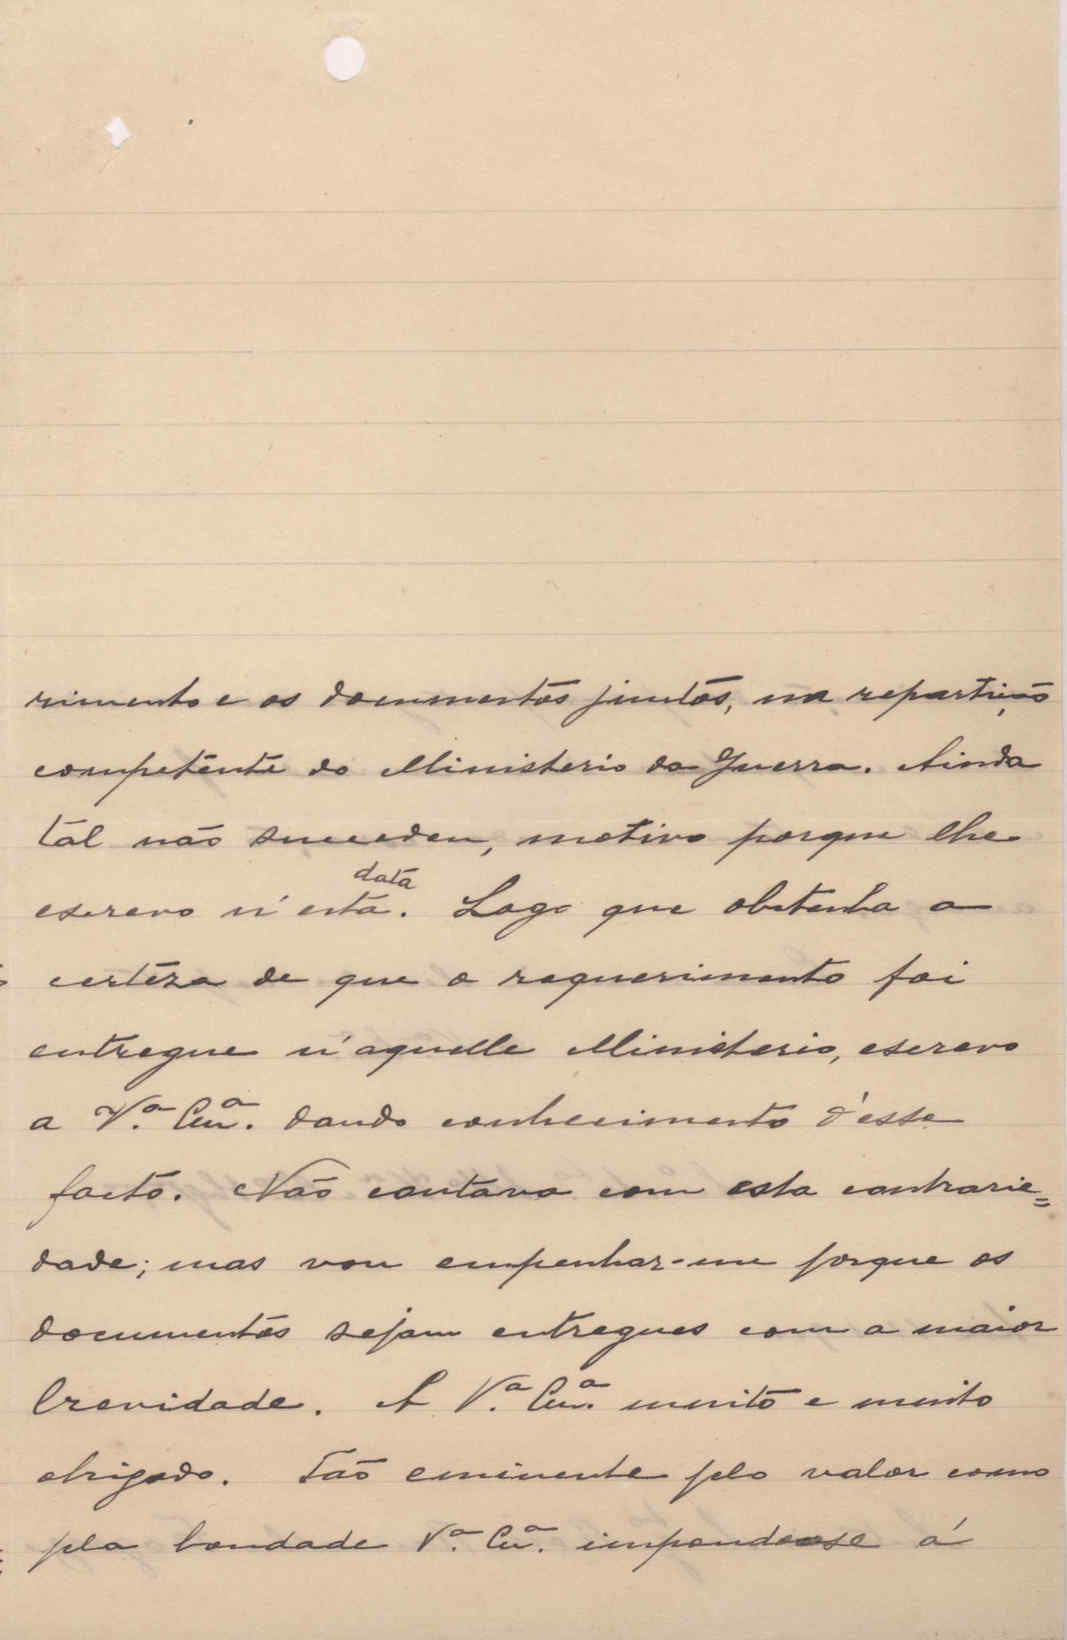 rimento e os documentos juntos, na repartição
competente do Ministerio da Guerra. Ainda
tal não succedeu, motivo porque lhe
escrevo n'esta data. Logo que obtenha a
certeza de que o requerimento foi
entregue n'aquelle Ministerio, escrevo
a V.ª Ex.ª dando conhecimento d'esse
facto. Não contava com esta contrarie=
dade; mas vou empenhar-me porque os
documentos sejam entregues com a maior
brevidade. A V.ª Ex.ª muito e muito
obrigado. Tão eminente pelo valor como
pela bondade V.ª Ex.ª impondo-se á